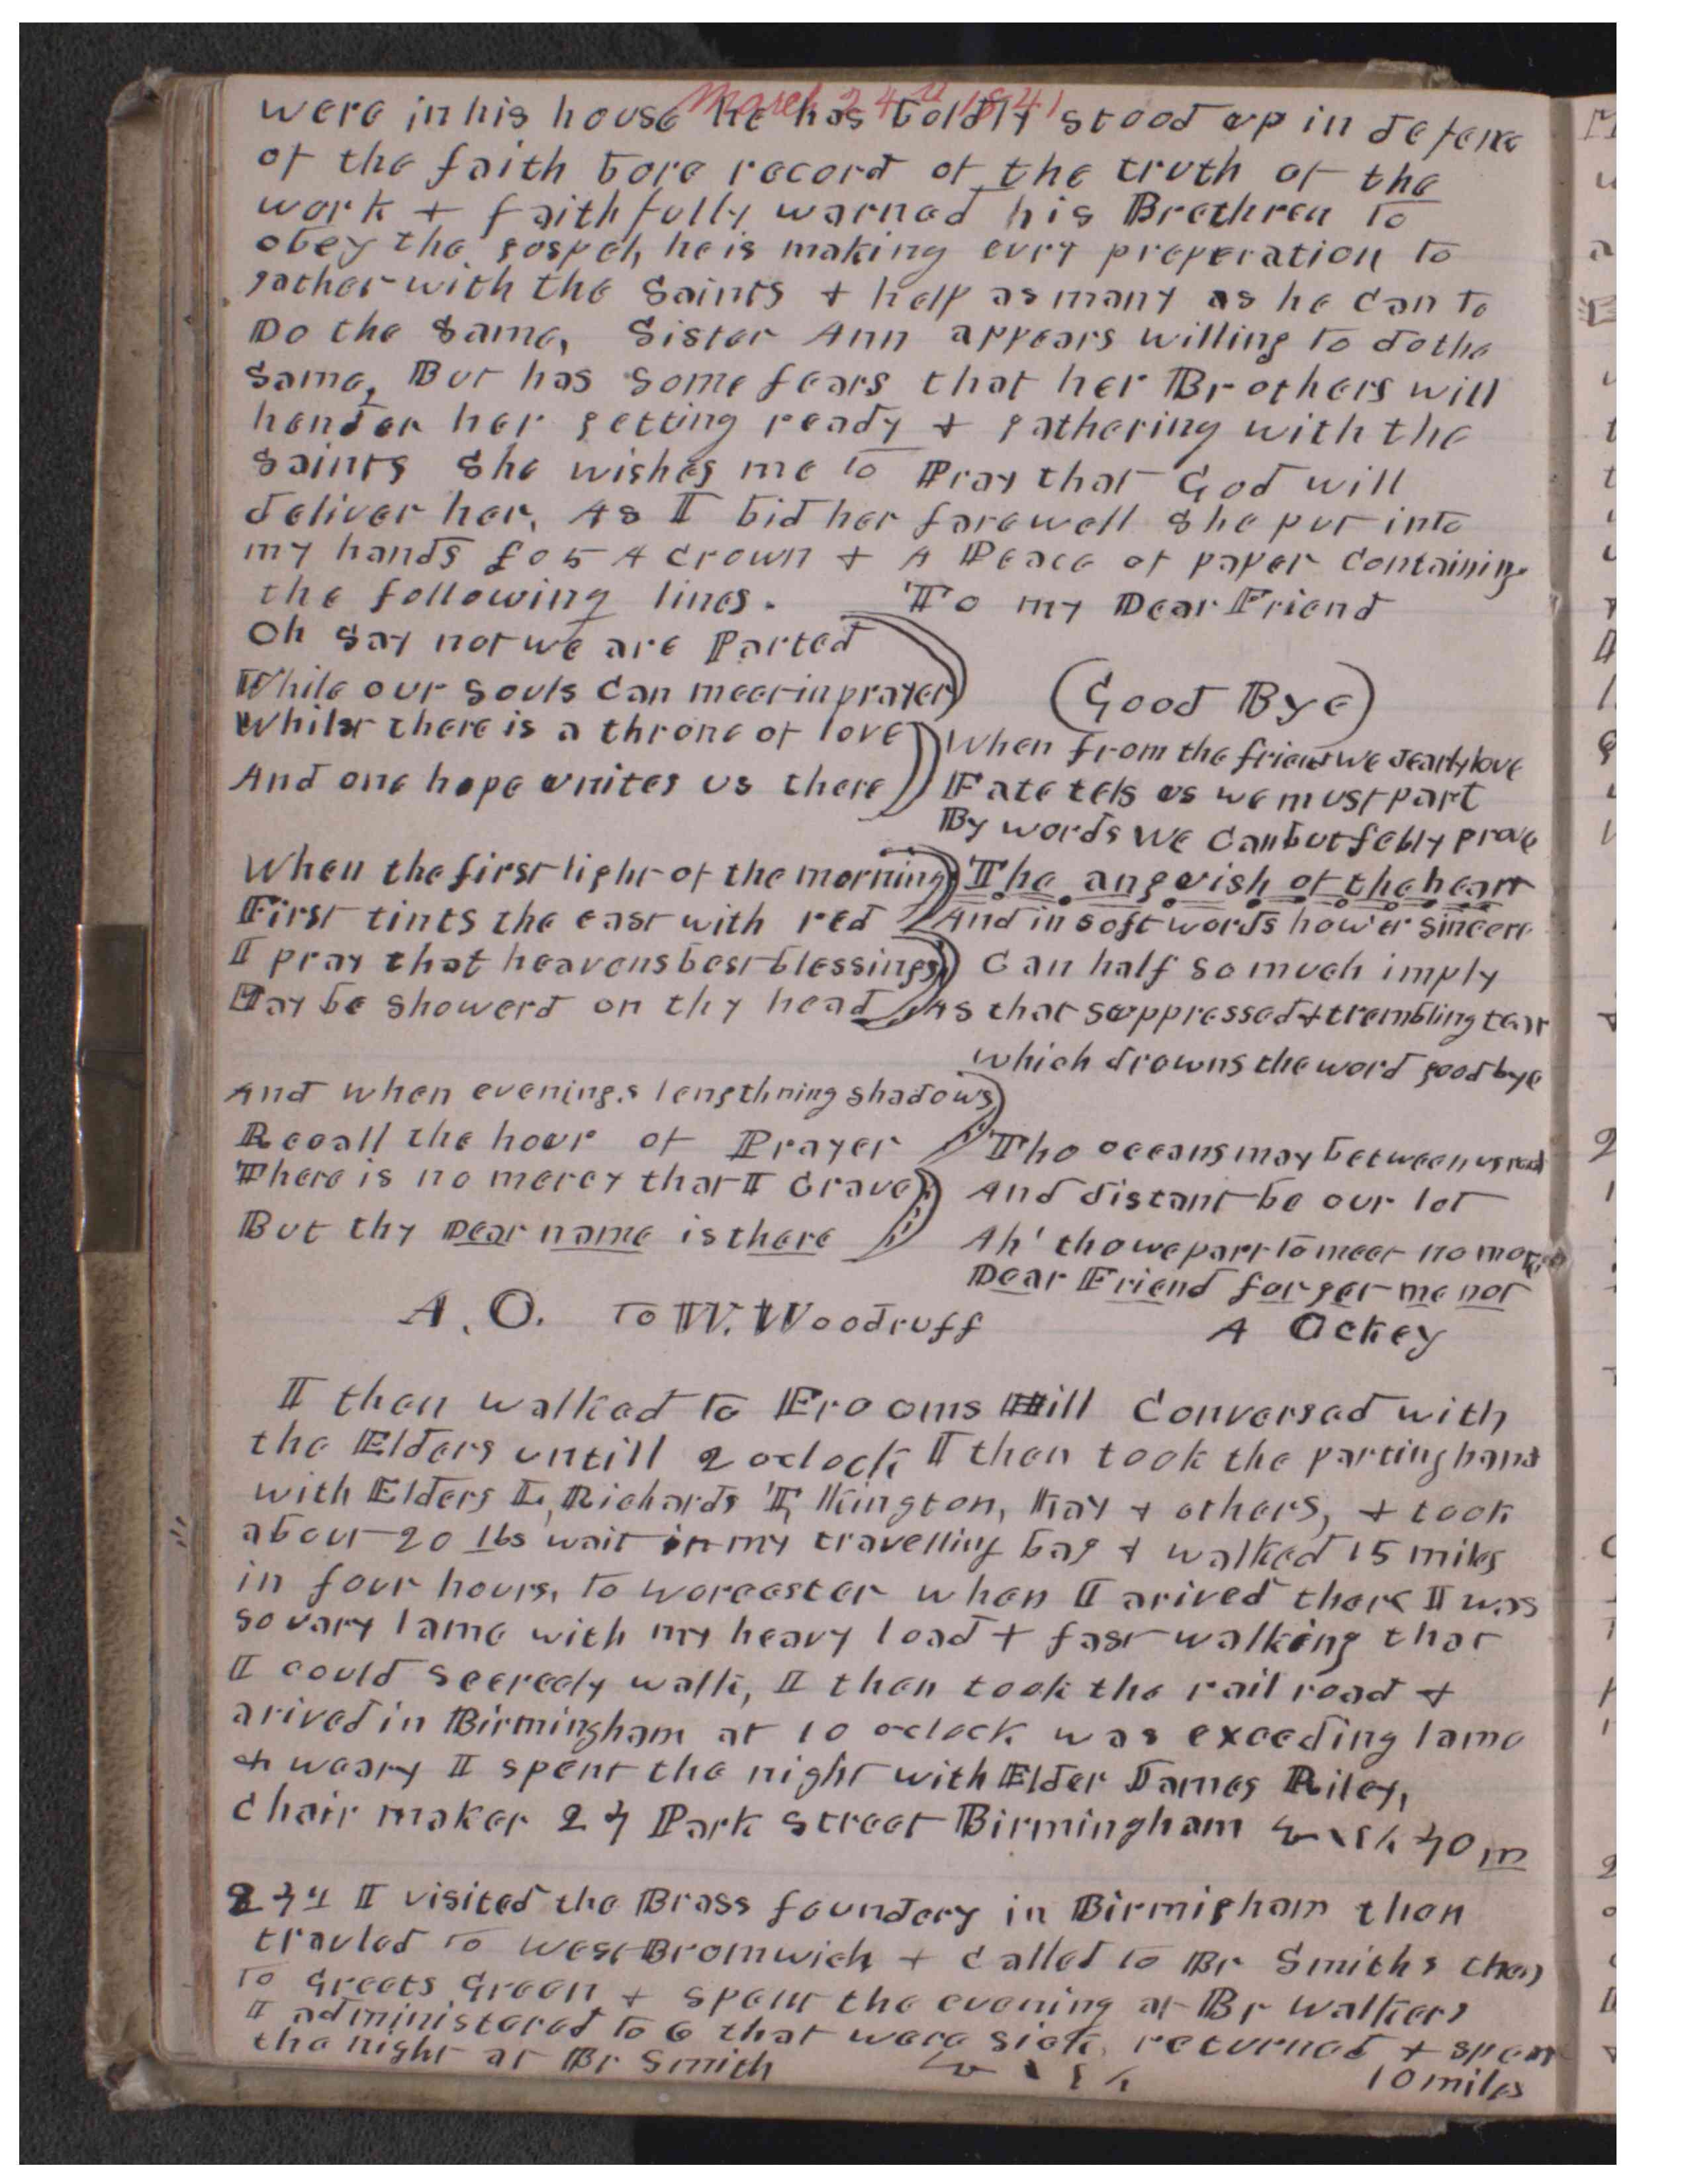 March 24th 1841
were in his house he has boldly stood up in defens
of the faith bore record of the truth of the
work + faithfully warned his Brethren to
obey the gospel, he is making evry preperation to
gather with the Saints + help as many as he can to
Do the same, Sister Ann appears willing to do the
same, But has some fears that her Brothers will
hender her getting ready + gathering with the
Saints She wishes me to Pray that God will
deliver her. As I bid her farewell She put into
my hands £0 5 A Crown + A Peace of paper Containing
the following lines. To my Dear Friend
Oh say not we are Parted
While our souls Can meet in prayer
Whilst there is a throne of love
And one hope unites us there
When the first light of the morning
First tints the east with red
I pray that heavens best blessings
May be showerd on thy head
And when evening.s lengthning shadows
Recall the hour of Prayer
There is no mercy that I Crave
But thy Dear name is there
A. O. To W. Woodruff
(Good Bye)
When from the friend we dearly love
Fate tels us we must part
By words we Can but febly prove
The anguish of the heart
And in soft words how'er sincere
Can half so much imply
As that suppressed + trembling tear
which drowns the word good bye
Tho oceans may between us
And distant be our lot
Ah' tho we part to meet no more
Dear Friend forget me not
A Ockey
I then walked to Frooms Hill Conversed with
the Elders untill 2 oclock I then took the parting hand
with Elders L, Richards T, Kington, Kay + others, + took
about 20 lbs wait in my travelling bag + walked 15 miles
in four hours, to worcester when I arived there I was
so vary lame with my heavy load + fast walking that
I could scercely walk, I then took the rail road +
arived in Birmingham at 10 oclock was exceeding lame
+ weary I spent the night with Elder James Riley,
Chair maker 27 Park Street Birmingham 40 m
I visited the Brass foundery in Birmigham then
travled to West Bromwich + Called to Br Smiths then
to Greets Green + spent the evening at Br Walkers
I administered to 6 that were sick, returned + spent
the night at Br Smith 10 miles